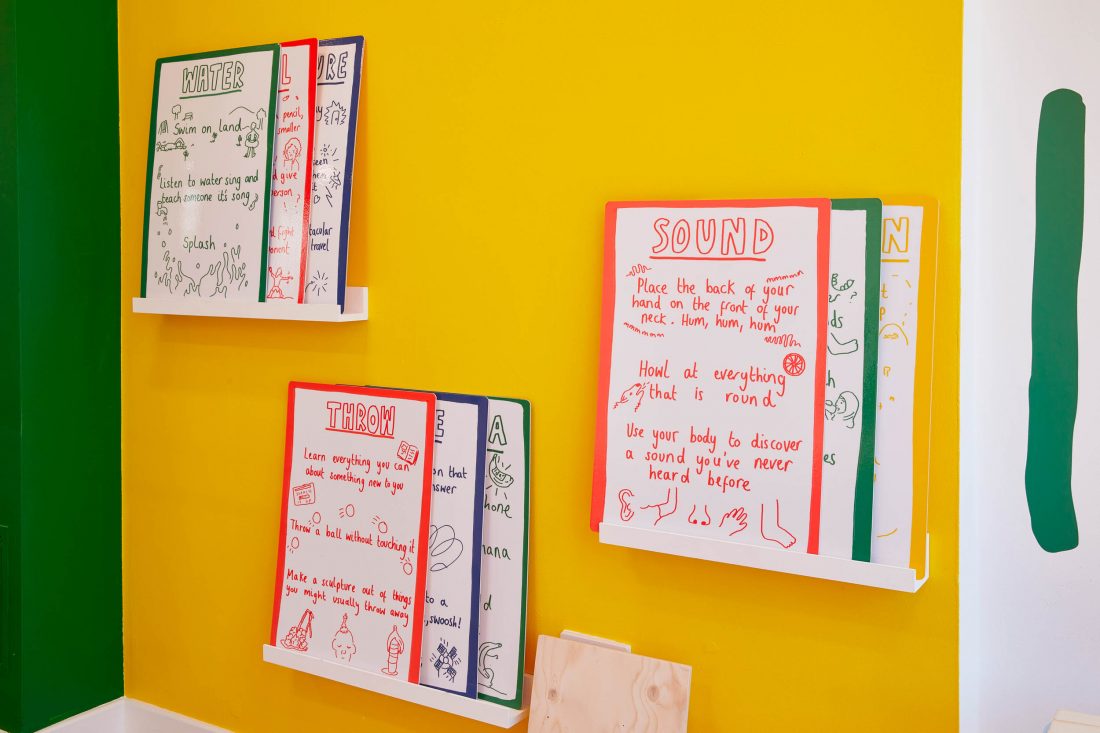 WATER
Swim on land
Listen to water sing and
teach someone it's song
Splash
L
pencil,
smaller
give
erson
fight
onent
URE
y
seen
hem
it
tacular
travel
THROW
Learn everything you can
about something new to you
Throw a ball without touching it
Make a sculpture out of things
you might usually throw away
E
on that
nswer
to a
,swoosh!
A
hone
nana
d
SOUND
mmmmm
Place the back of your
hand on the front of your
neck. Hum, hum, hum
mmmmmm
Howl at everything
that is round
Use your body to discover
a sound you've never
heard before
er
ds
h
es
N
t
P